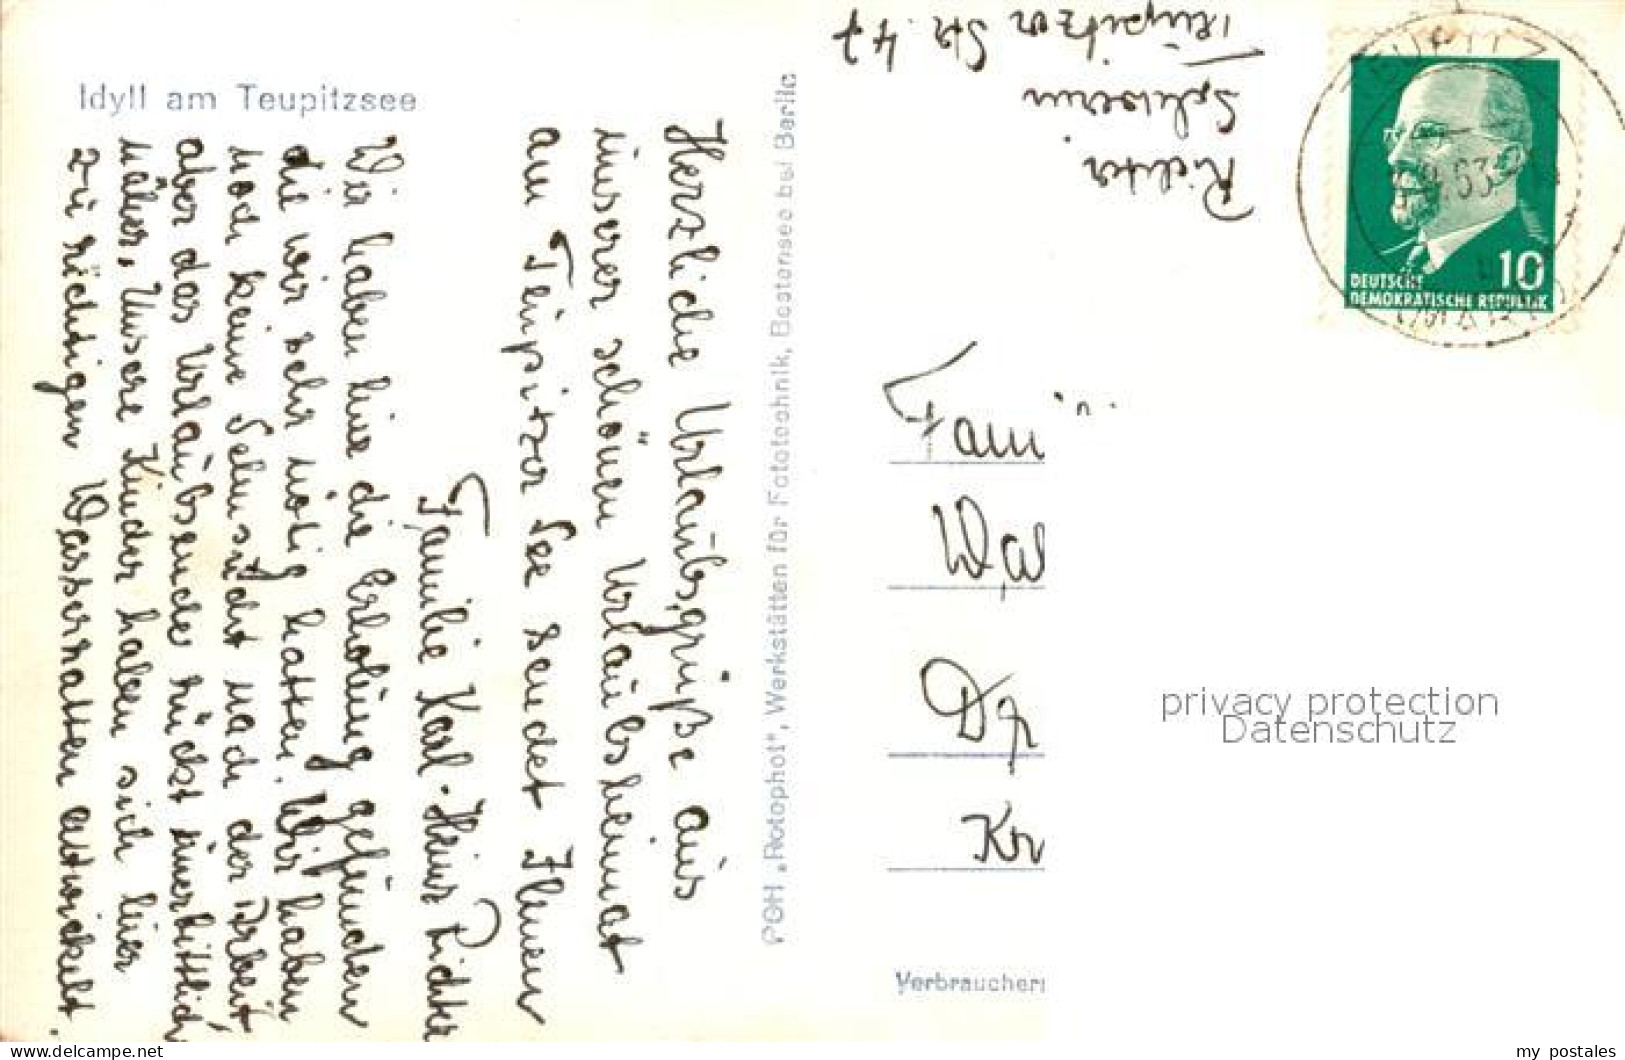 Idyll am Teupitzsee
Herzliche Urlaubsgrüße aus
unserer schönen Urlaubsheimat
am Teupitzer See sendet Ihnen
Familie Karl-Heinz Richter
Wir haben hier die Erholung gefunden
die wir sehr nötig hatten. Wir haben
noch keine Sehnsucht nach der Arbeit,
aber das Urlaubsende rückt unerbittlich
näher. Unsere Kinder haben sich hier
zu richtigen Wasserratten entwickelt.
PGH „Rotophot", Werkstätten für Fototechnik, Bestensee bei Berlin
Richter
Schwerin
Teupitzer Str. 47
10
DEUTSCHE
DEMOKRATISCHE REPUBLIK
Fam
Kr
Verbraucher
privacy protection
Datenschutz
www.delcampe.net
my_postales